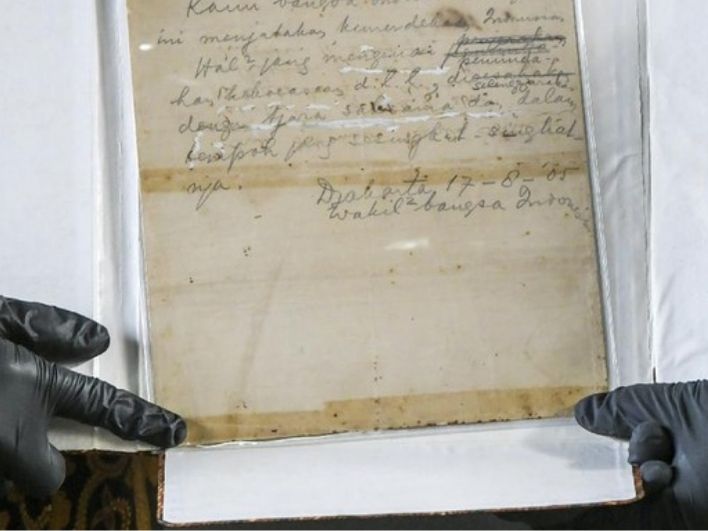 Kami bangsa Indonesia
ini menjatakan kemerdekaan Indonesia
Hal² jang mengenai
peminda-
han kekoeasaan d.l.l., diselenggarakan
dengan tjara saksama dan dalam
tempoh jang sesingkat-singkat
nja.
Djakarta 17 - 8 - '05
Wakil² bangsa Indonesia